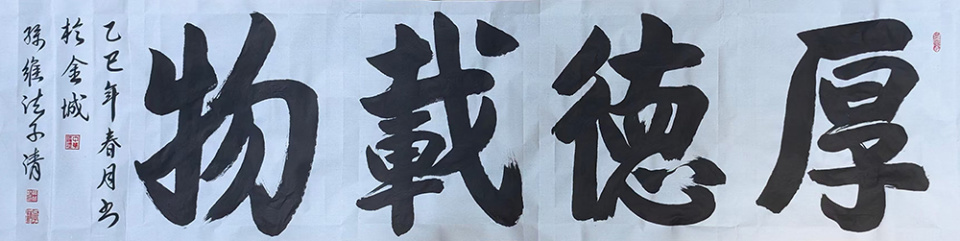 厚德載物
乙巳年春月书
於金城
孫維法子清